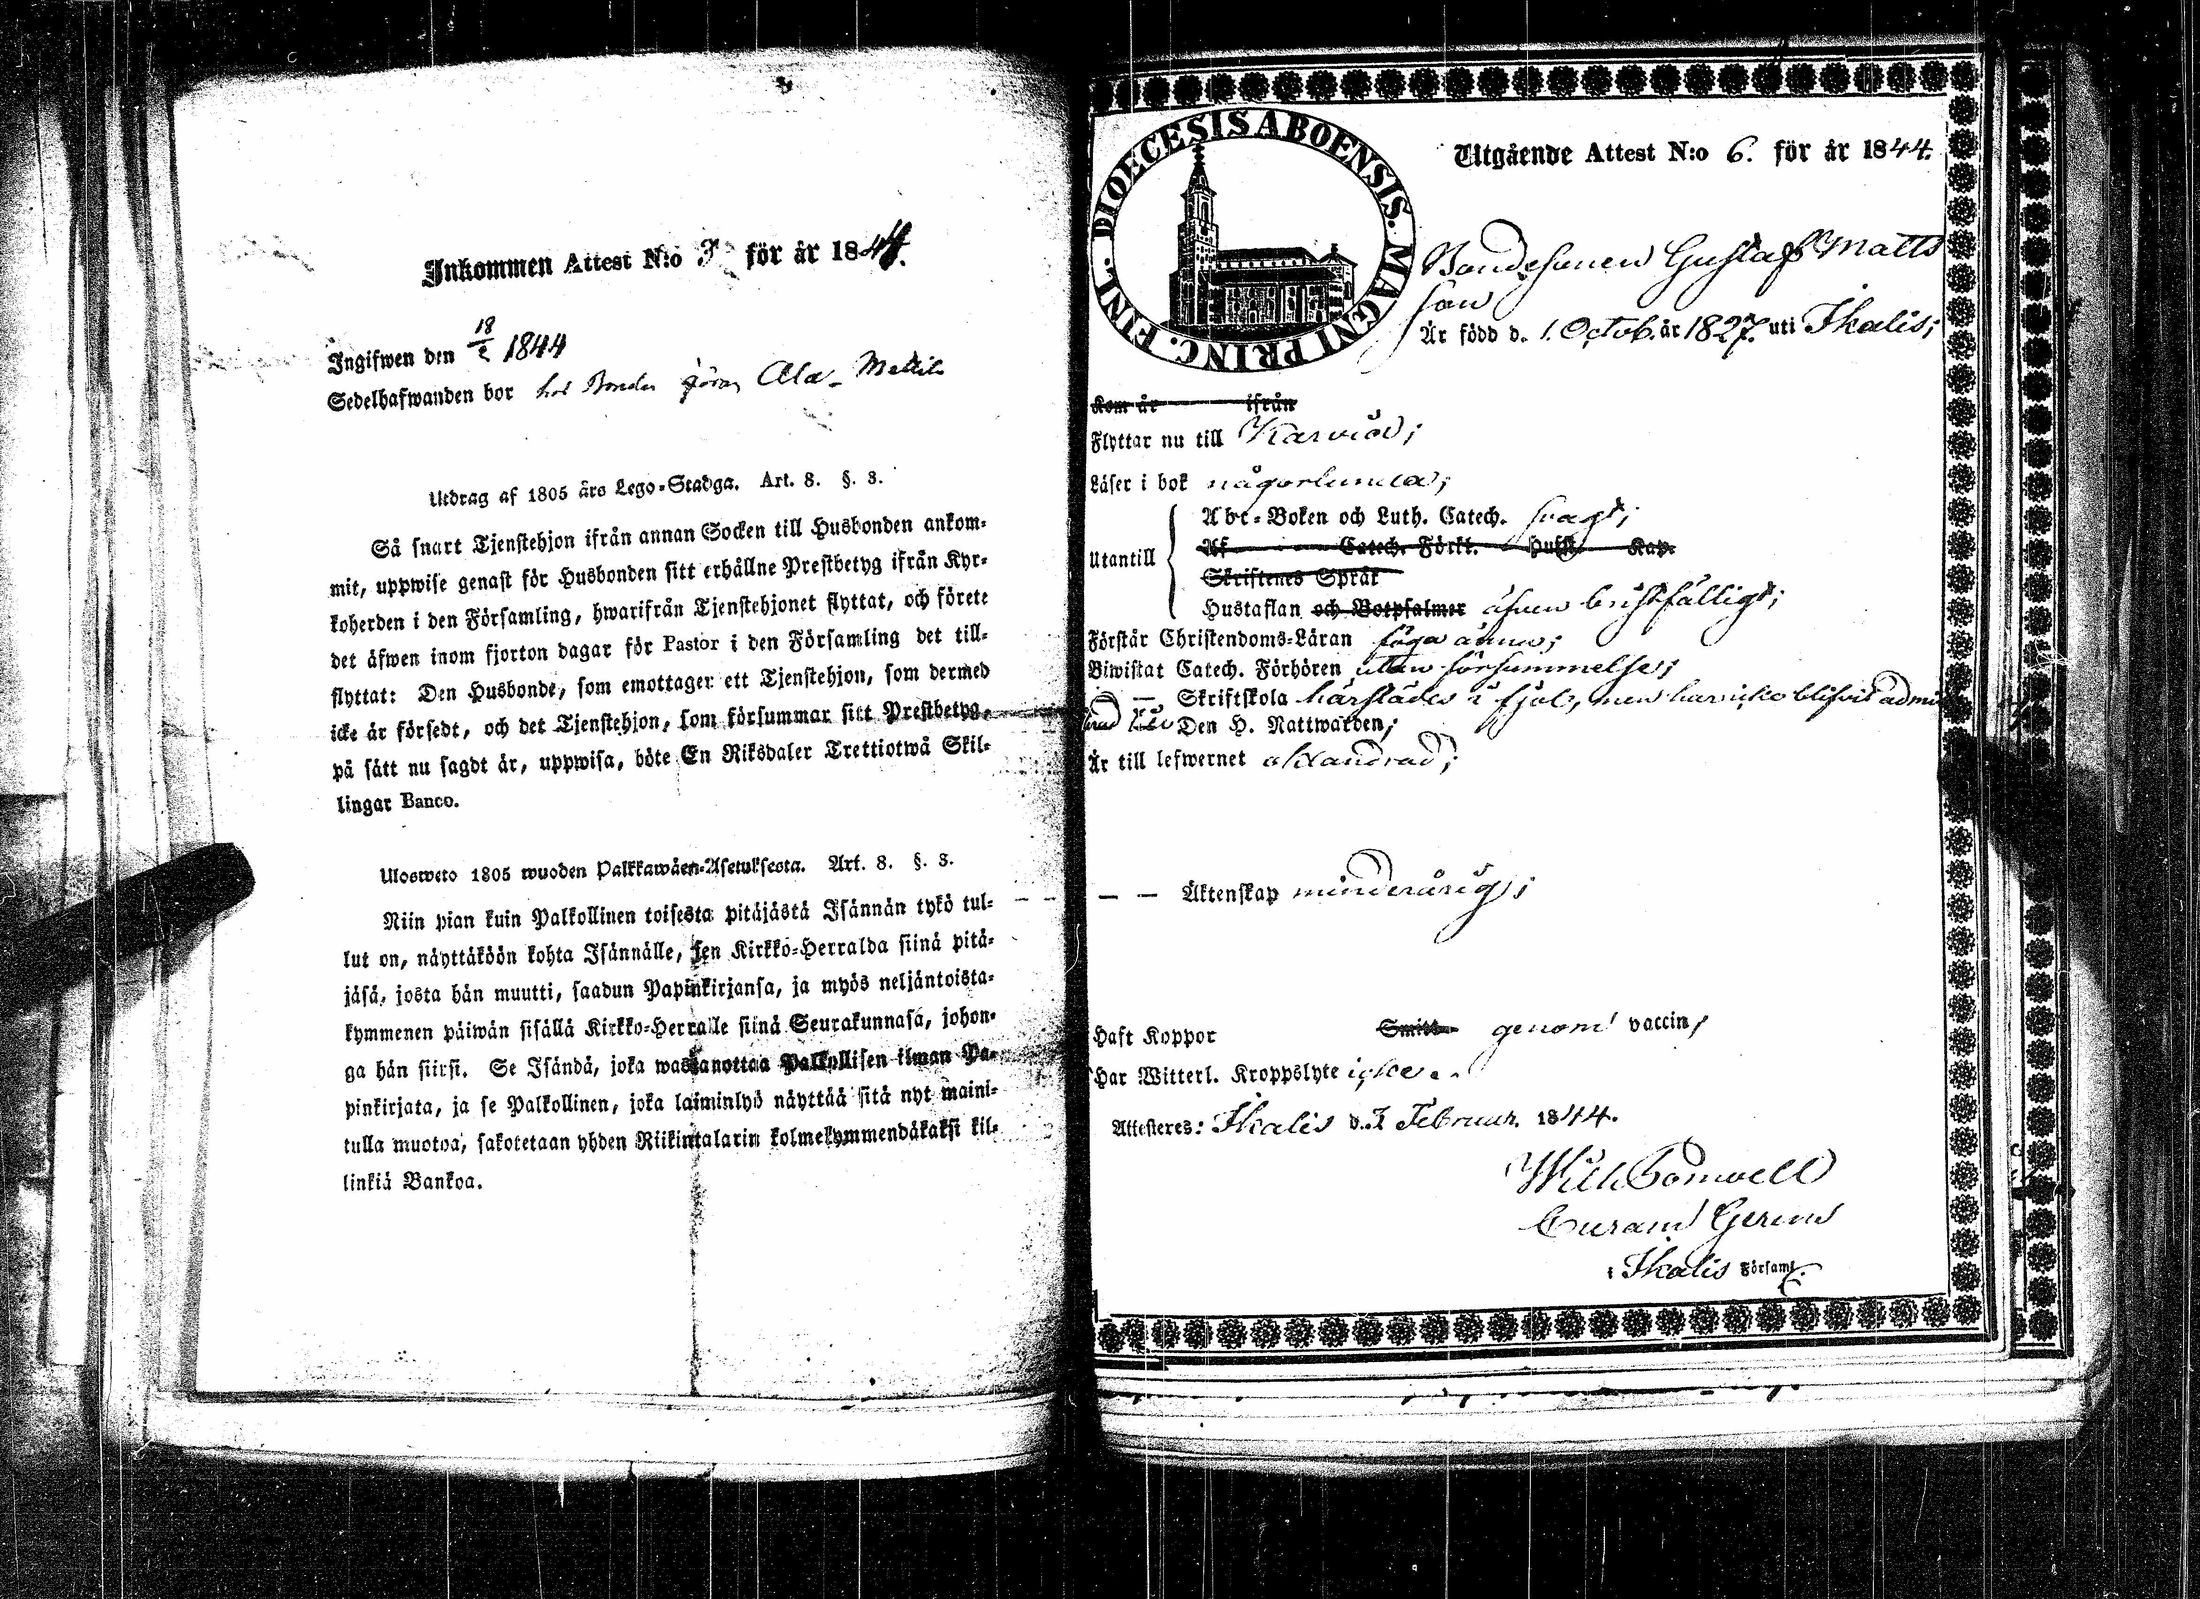 Inkommen Attest N:o 3 för år 1844.
Ingifwen den 18/2 1844
Sedelhafwanden bor hos Bonden Ala-Mattila
Utdrag af 1805 års Lego-Stadga. Art. 8. §. 3.
Så snart Tjenstehjon ifrån annan Socken till Husbonden ankom-
mit, uppwise genast för Husbonden sitt erhållne Prestbetyg ifrån Kyr-
koherden i den Församling, hwarifrån Tjenstehjonet flyttat, och förete
det äfwen inom fjorton dagar för Pastor i den Församling det till-
flyttat: Den Husbonde, som emottager ett Tjenstehjon, som dermed
icke är försedt, och det Tjenstehjon, som försummar sitt Prestbetyg,
på sätt nu sagdt är, uppwisa, böte En Riksdaler Trettiotwå Skil-
lingar Banco.
Ulosweto 1805 wuoden Palkkawäen-Asetuksesta. Art. 8. §. 3.
Niin pian kuin Palkollinen toisesta pitäjästä Isännän tykö tul-
lut on, näyttäköön kohta Isännälle, sen Kirkko-Herralda siinä pitä-
jäsä, josta hän muutti, saadun Papinkirjansa, ja myös neljäntoista-
kymmenen päiwän sisällä Kirkko-Herralle siinä Seurakunnasa, johon-
ga hän siirsi. Se Isändä, joka wastanottaa Palkollisen ilman Pa-
pinkirjata, ja se Palkollinen, joka laiminlyö näyttää sitä nyt maini-
tulla muotoa, sakotetaan yhden Riikintalarin kolmekymmendäkaksi kil-
linkiä Bankoa.
DIOECESIS ABOENSIS. MAGNI PRINC. FINL.
Utgående Attest N:o 6. för år 1844.
Bondesonen Gustaf Matts
son
Är född d. 1. Octob. år 1827. uti Ikalis;
Kom år ifrån
Flyttar nu till Karvia;
Läser i bok någorlunda;
Utantill
Abc-Boken och Luth. Catech. svagt;
Af Catech. Förkl. Hufst. Kap.
Skriftenes Språk
Hustaflan och Botpsalmer äfven bristfälligt;
Förstår Christendoms-Läran föga ännu;
Biwistat Catech. Förhören utan försummelse;
— Skriftskola härstädes i fjol, men har icke blifvit admit
terad till Den H. Nattwarden;
Är till lefwernet oklandrad;
— — Äktenskap minderårig;
Haft Koppor Smitt- genom vaccin;
Har Witterl. Kroppslyte icke..
Attesteras: Ikalis d. 7 Februar. 1844.
Wilh.
Curam Gerens
i Ikalis Församl.